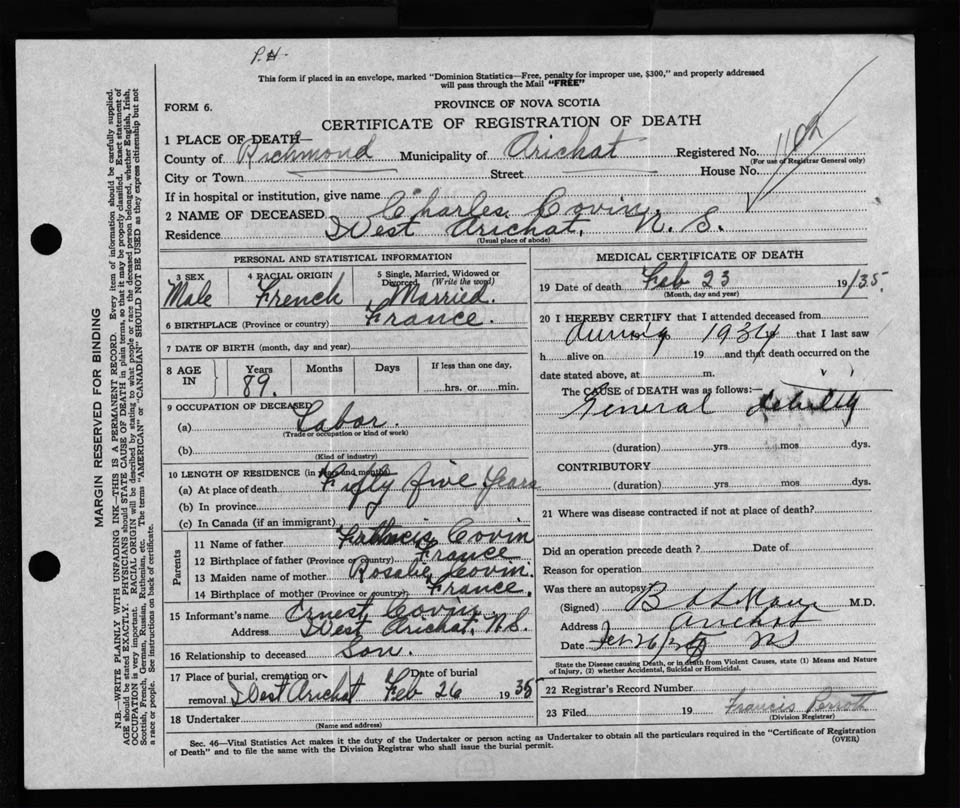 P.H.
This form if placed in an envelope, marked "Dominion Statistics—Free, penalty for improper use, $300," and properly addressed
will pass through the Mail "FREE"
FORM 6.
PROVINCE OF NOVA SCOTIA
CERTIFICATE OF REGISTRATION OF DEATH
1 PLACE OF DEATH—
County of Richmond Municipality of Arichat Registered No.
(For use of Registrar General only)
City or Town Street House No.
If in hospital or institution, give name
2 NAME OF DECEASED Charles Covin.
Residence West Arichat, N. S.
(Usual place of abode)
PERSONAL AND STATISTICAL INFORMATION
3 SEX 4 RACIAL ORIGIN 5 Single, Married, Widowed or Divorced (Write the word)
Male French Married.
6 BIRTHPLACE (Province or country) France.
7 DATE OF BIRTH (month, day and year)
8 AGE IN Years Months Days If less than one day,
89. hrs. or min.
9 OCCUPATION OF DECEASED
(a) Labor.
(Trade or occupation or kind of work)
(b)
(Kind of industry)
10 LENGTH OF RESIDENCE (in years and months)
(a) At place of death Fifty five Years
(b) In province
(c) In Canada (if an immigrant)
Parents
11 Name of father Covin
12 Birthplace of father (Province or country) France
13 Maiden name of mother Rosalie Covin.
14 Birthplace of mother (Province or country) France.
15 Informant's name Ernest Covin.
Address West Arichat, N.S.
16 Relationship to deceased Son.
17 Place of burial, cremation or removal West Arichat Date of burial Feb 26 1935
18 Undertaker
(Name and address)
MEDICAL CERTIFICATE OF DEATH
19 Date of death Feb 23 19/35.
(Month, day and year)
20 I HEREBY CERTIFY that I attended deceased from
during 1934 that I last saw
h alive on 19 and that death occurred on the
date stated above, at m.
The CAUSE of DEATH was as follows:
General debility
(duration) yrs mos dys.
CONTRIBUTORY
(duration) yrs mos dys.
21 Where was disease contracted if not at place of death?
Did an operation precede death? Date of
Reason for operation
Was there an autopsy
(Signed) M.D.
Address Arichat
Date Feb 26/35 NS
State the Disease causing Death, or in death from Violent Causes, state (1) Means and Nature
of Injury, (2) whether Accidental, Suicidal or Homicidal.
22 Registrar's Record Number
23 Filed 19 Francis Perrott
(Division Registrar)
Sec. 46—Vital Statistics Act makes it the duty of the Undertaker or person acting as Undertaker to obtain all the particulars required in the "Certificate of Registration
of Death" and to file the same with the Division Registrar who shall issue the burial permit.
(OVER)
MARGIN RESERVED FOR BINDING
N.B.—WRITE PLAINLY WITH UNFADING INK—THIS IS A PERMANENT RECORD. Every item of information should be carefully supplied.
AGE should be stated EXACTLY. PHYSICIANS should STATE CAUSE OF DEATH in plain terms, so that it may be properly classified. Exact statement of
OCCUPATION is very important. RACIAL ORIGIN will be described by stating to what people or race the deceased person belonged, whether English, Irish,
Scottish, French, German, Russian, Ruthenian, etc. The terms "AMERICAN" or "CANADIAN" SHOULD NOT BE USED as they express citizenship but not
a race or people. See instructions on back of certificate.